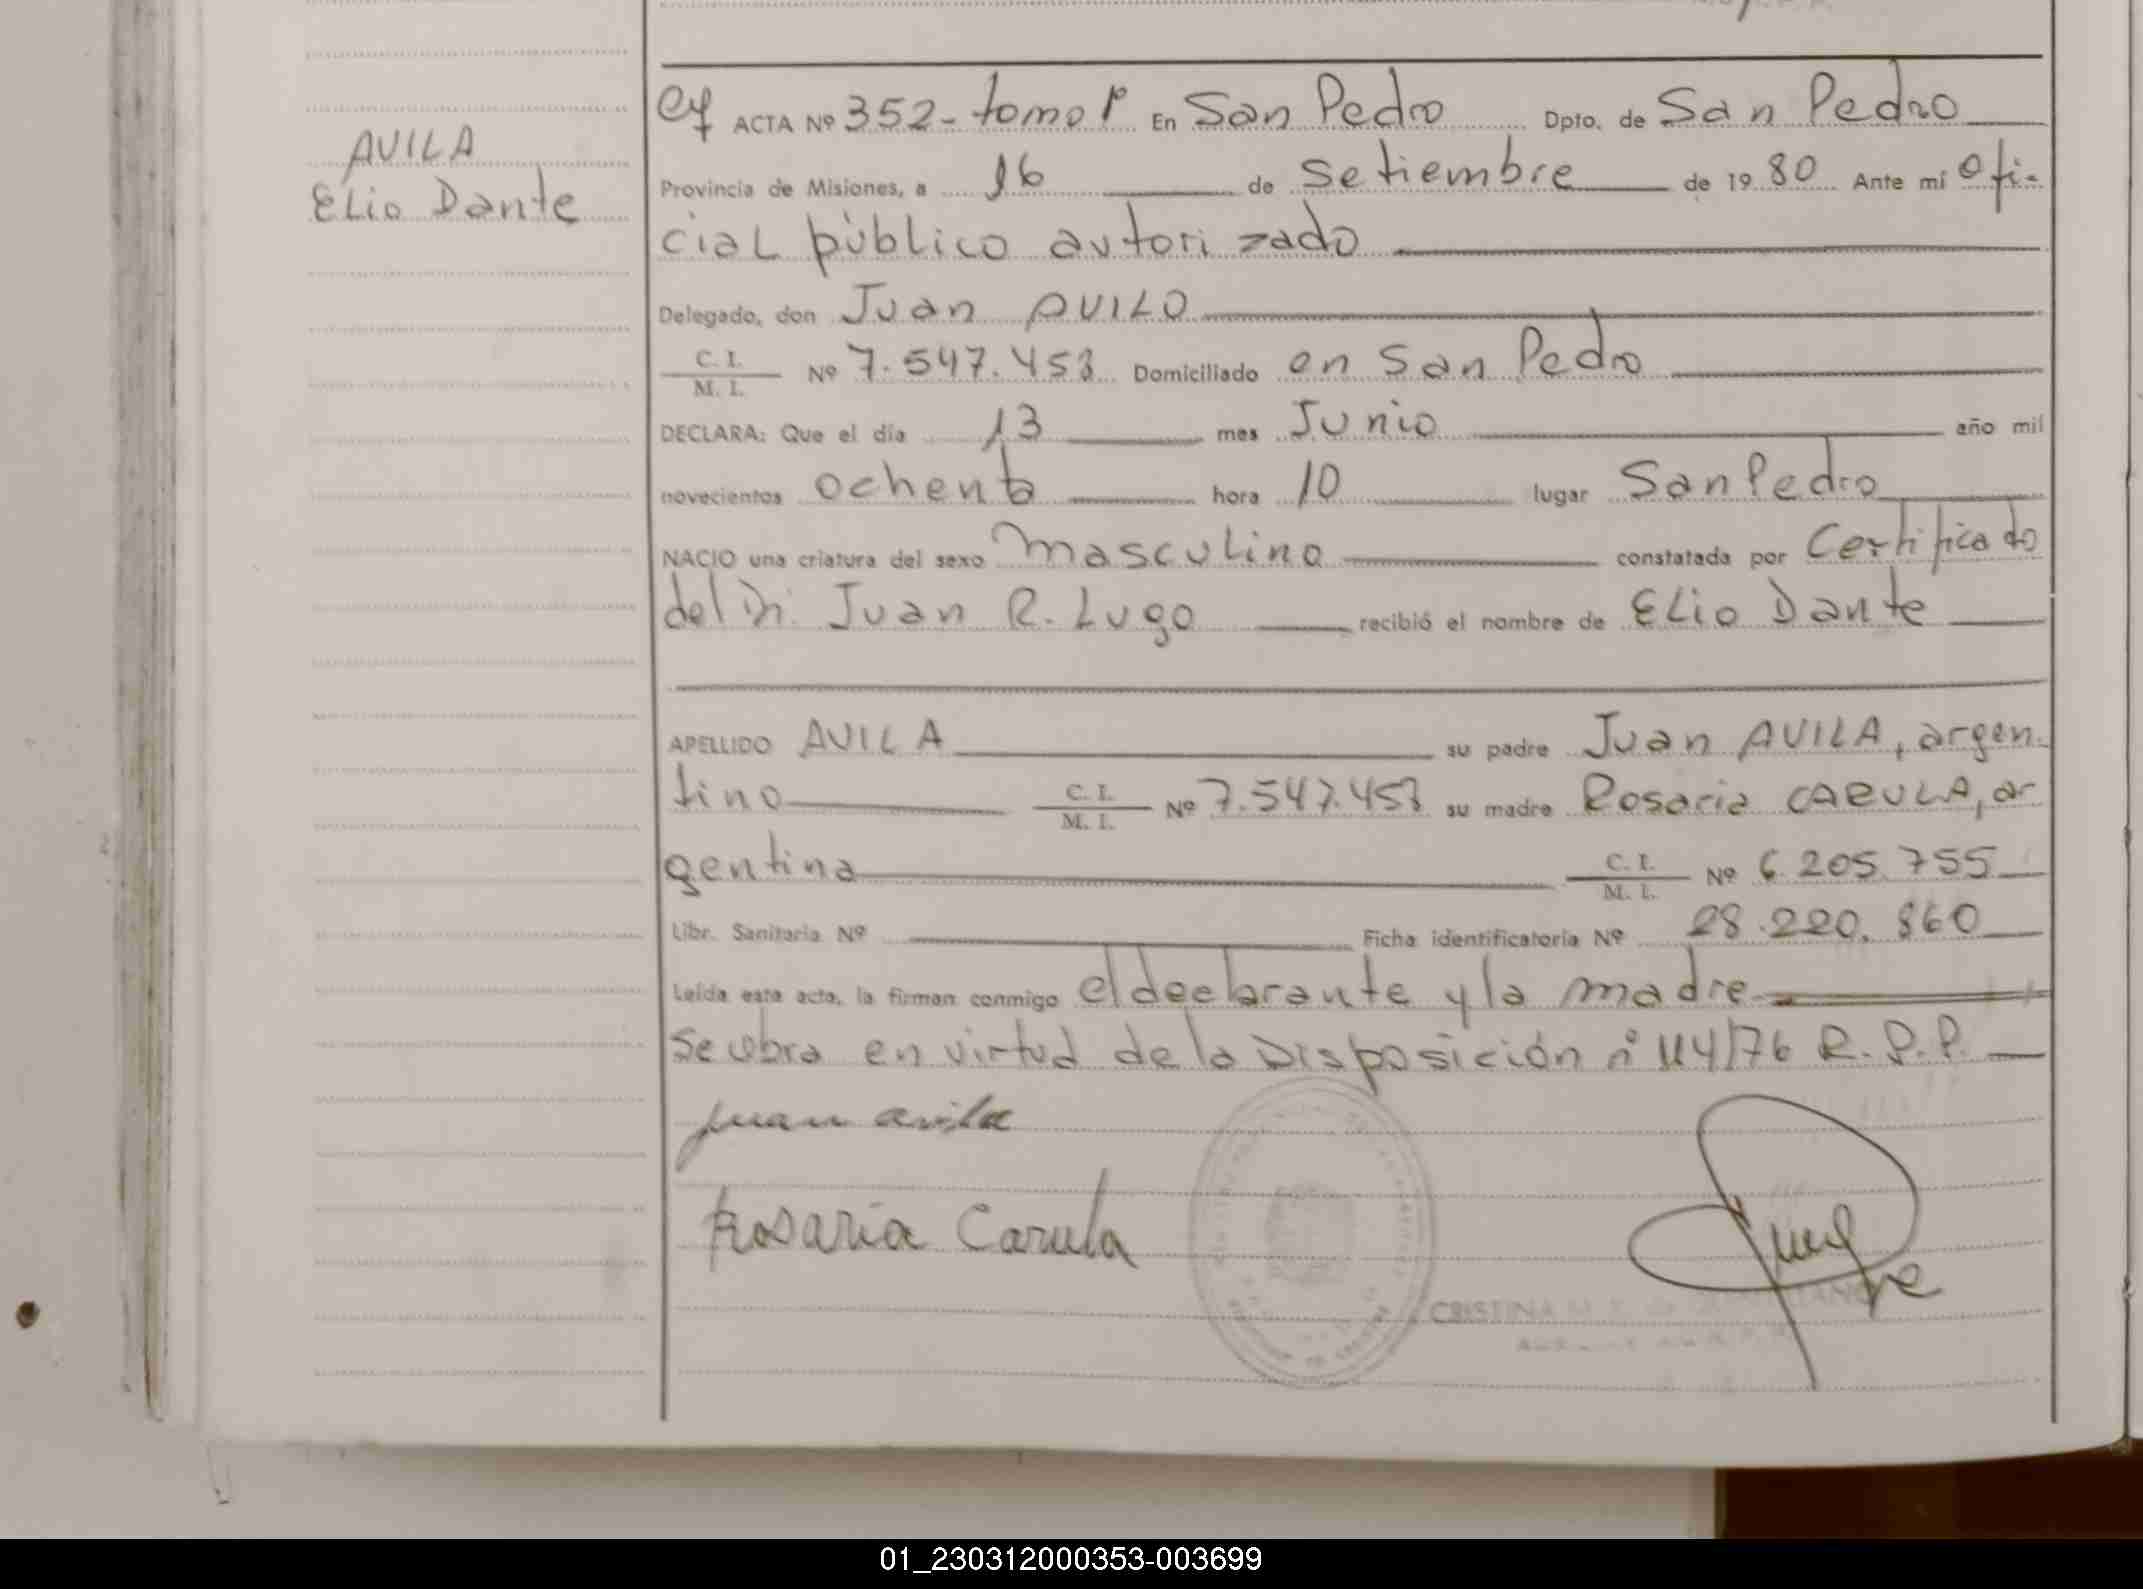 AVILA
Elio Dante
ACTA Nº 352 - tomo 1º En San Pedro Dpto. de San Pedro
Provincia de Misiones, a 16 de Setiembre de 19 80 Ante mí ofi-
cial público autorizado
Delegado, don Juan AVILA
C. I. / M. I. Nº 7.547.453 Domiciliado en San Pedro
DECLARA: Que el día 13 mes Junio año mil
novecientos ochenta hora 10 lugar San Pedro
NACIO una criatura del sexo masculino constatada por Certificado
del Dr. Juan R. Lugo recibió el nombre de Elio Dante
APELLIDO AVILA su padre Juan AVILA, argen-
tino C. I. / M. I. Nº 7.547.453 su madre Rosaria CARULA, ar
gentina C. I. / M. I. Nº 6.205.755
Libr. Sanitaria Nº Ficha identificatoria Nº 28.220.860
Leída esta acta, la firman conmigo el declarante y la madre
Se labra en virtud de la Disposición nº 114/76 R.P.P.
Juan avila
Rosaria Carula
CRISTINA
01_230312000353-003699